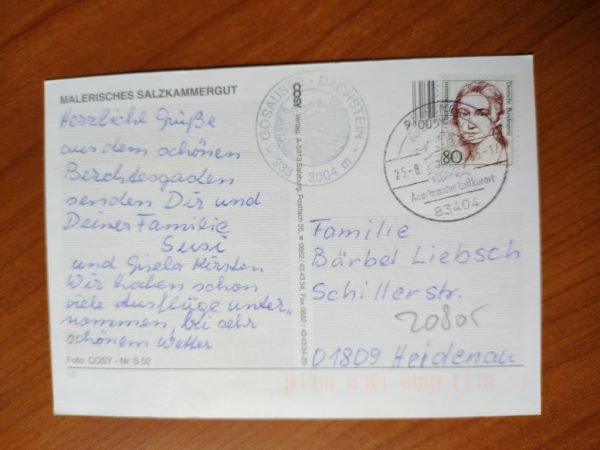 MALERISCHES SALZKAMMERGUT
Herzliche Grüße
aus dem schönen
Berchtesgaden
senden Dir und
Deiner Familie
Susi
und Gisela Kirsten.
Wir haben schon
viele Ausflüge unter„
nommen, bei sehr
schönem Wetter
Foto: COSY - Nr. S 52
COSY Verlag, A-5013 Salzburg, Postfach 35,
GOSAUSEE - DACHSTEIN
933 - 3004 m
Deutsche Bundespost
80
25.-8
Anerkannter Luftkurort
83404
Familie
Bärbel Liebsch
Schillerstr.
01809 Heidenau